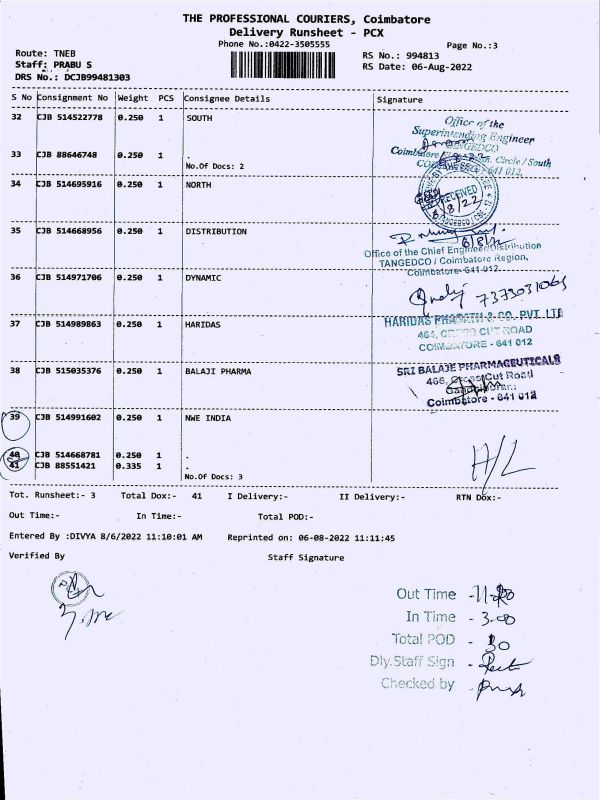 THE PROFESSIONAL COURIERS, Coimbatore
Delivery Runsheet - PCX
Phone No.:0422-3505555
Page No.:3
Route: TNEB
RS No.: 994813
Staff: PRABU S
RS Date: 06-Aug-2022
DRS No.: DCJB99481303
S No Consignment No Weight PCS Consignee Details Signature
32 CJB 514522778 0.250 1 SOUTH
Office of the
Superintending Engineer
TANGEDCO
Circle / South
641 012.
33 CJB 88646748 0.250 1 .
No.Of Docs: 2
34 CJB 514695916 0.250 1 NORTH
RECEIVED
6/8/22
35 CJB 514668956 0.250 1 DISTRIBUTION
6/8/22
Office of the Chief Engineer/Distribution
TANGEDCO / Coimbatore Region,
Coimbatore-641 012.
36 CJB 514971706 0.250 1 DYNAMIC
7373031065
37 CJB 514989863 0.250 1 HARIDAS
HARIDAS & CO. PVT. LTD
464, CROSS CUT ROAD
COIMBATORE - 641 012
38 CJB 515035376 0.250 1 BALAJI PHARMA
SRI BALAJE PHARMACEUTICALS
466, Cross Cut Road
Coimbatore - 641 012
39 CJB 514991602 0.250 1 NWE INDIA
40 CJB 514668781 0.250 1 .
41 CJB 88551421 0.335 1
No.Of Docs: 3
H/L
Tot. Runsheet:- 3 Total Dox:- 41 I Delivery:- II Delivery:- RTN Dox:-
Out Time:- In Time:- Total POD:-
Entered By :DIVYA 8/6/2022 11:10:01 AM Reprinted on: 06-08-2022 11:11:45
Verified By Staff Signature
Out Time -
In Time - 3.00
Total POD - 30
Dly.Staff Sign -
Checked by -